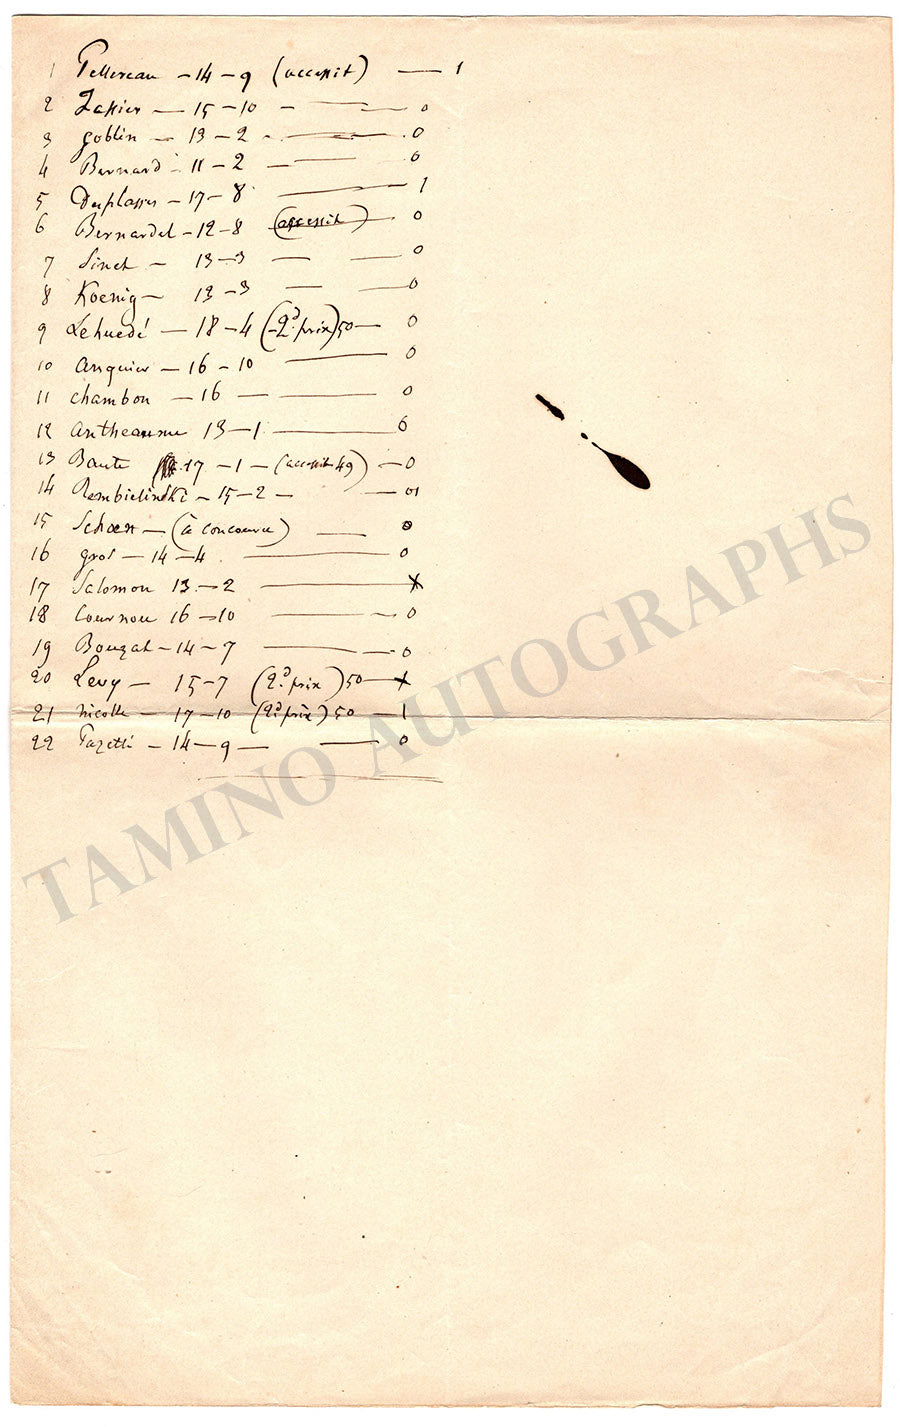 1 Pellereau - 14 - 9 (accessit) — 1
2 Lassier — 15 - 10 - — 0
3 goblin — 13 - 2 - — 0
4 Bernard - 11 - 2 — 0
5 Duplassis - 17 - 8 — 1
6 Bernardel - 12 - 8 (accessit) 0
7 Sinet — 13 - 3 — — 0
8 Koenig — 13 - 3 — — 0
9 Lehuedé — 18 - 4 (-2d. prix) 50 — 0
10 anquier — 16 - 10 — 0
11 chambon — 16 — — 0
12 antheaume 13 - 1 — 0
13 Baute 17 - 1 - (accessit 49) — 0
14 Rembielinski - 15 - 2 - — 01
15 — (à concouru) — 0
16 gros — 14 - 4 — 0
17 Salomon 13 - 2 — X
18 Cournou 16 - 10 — 0
19 Bouzat - 14 - 7 — 0
20 Levy — 15 - 7 (2d. prix) 50 — X
21 nicolle — 17 - 10 (2d. prix) 50 — 1
22 Pazetti - 14 - 9 — — 0
TAMINO AUTOGRAPHS